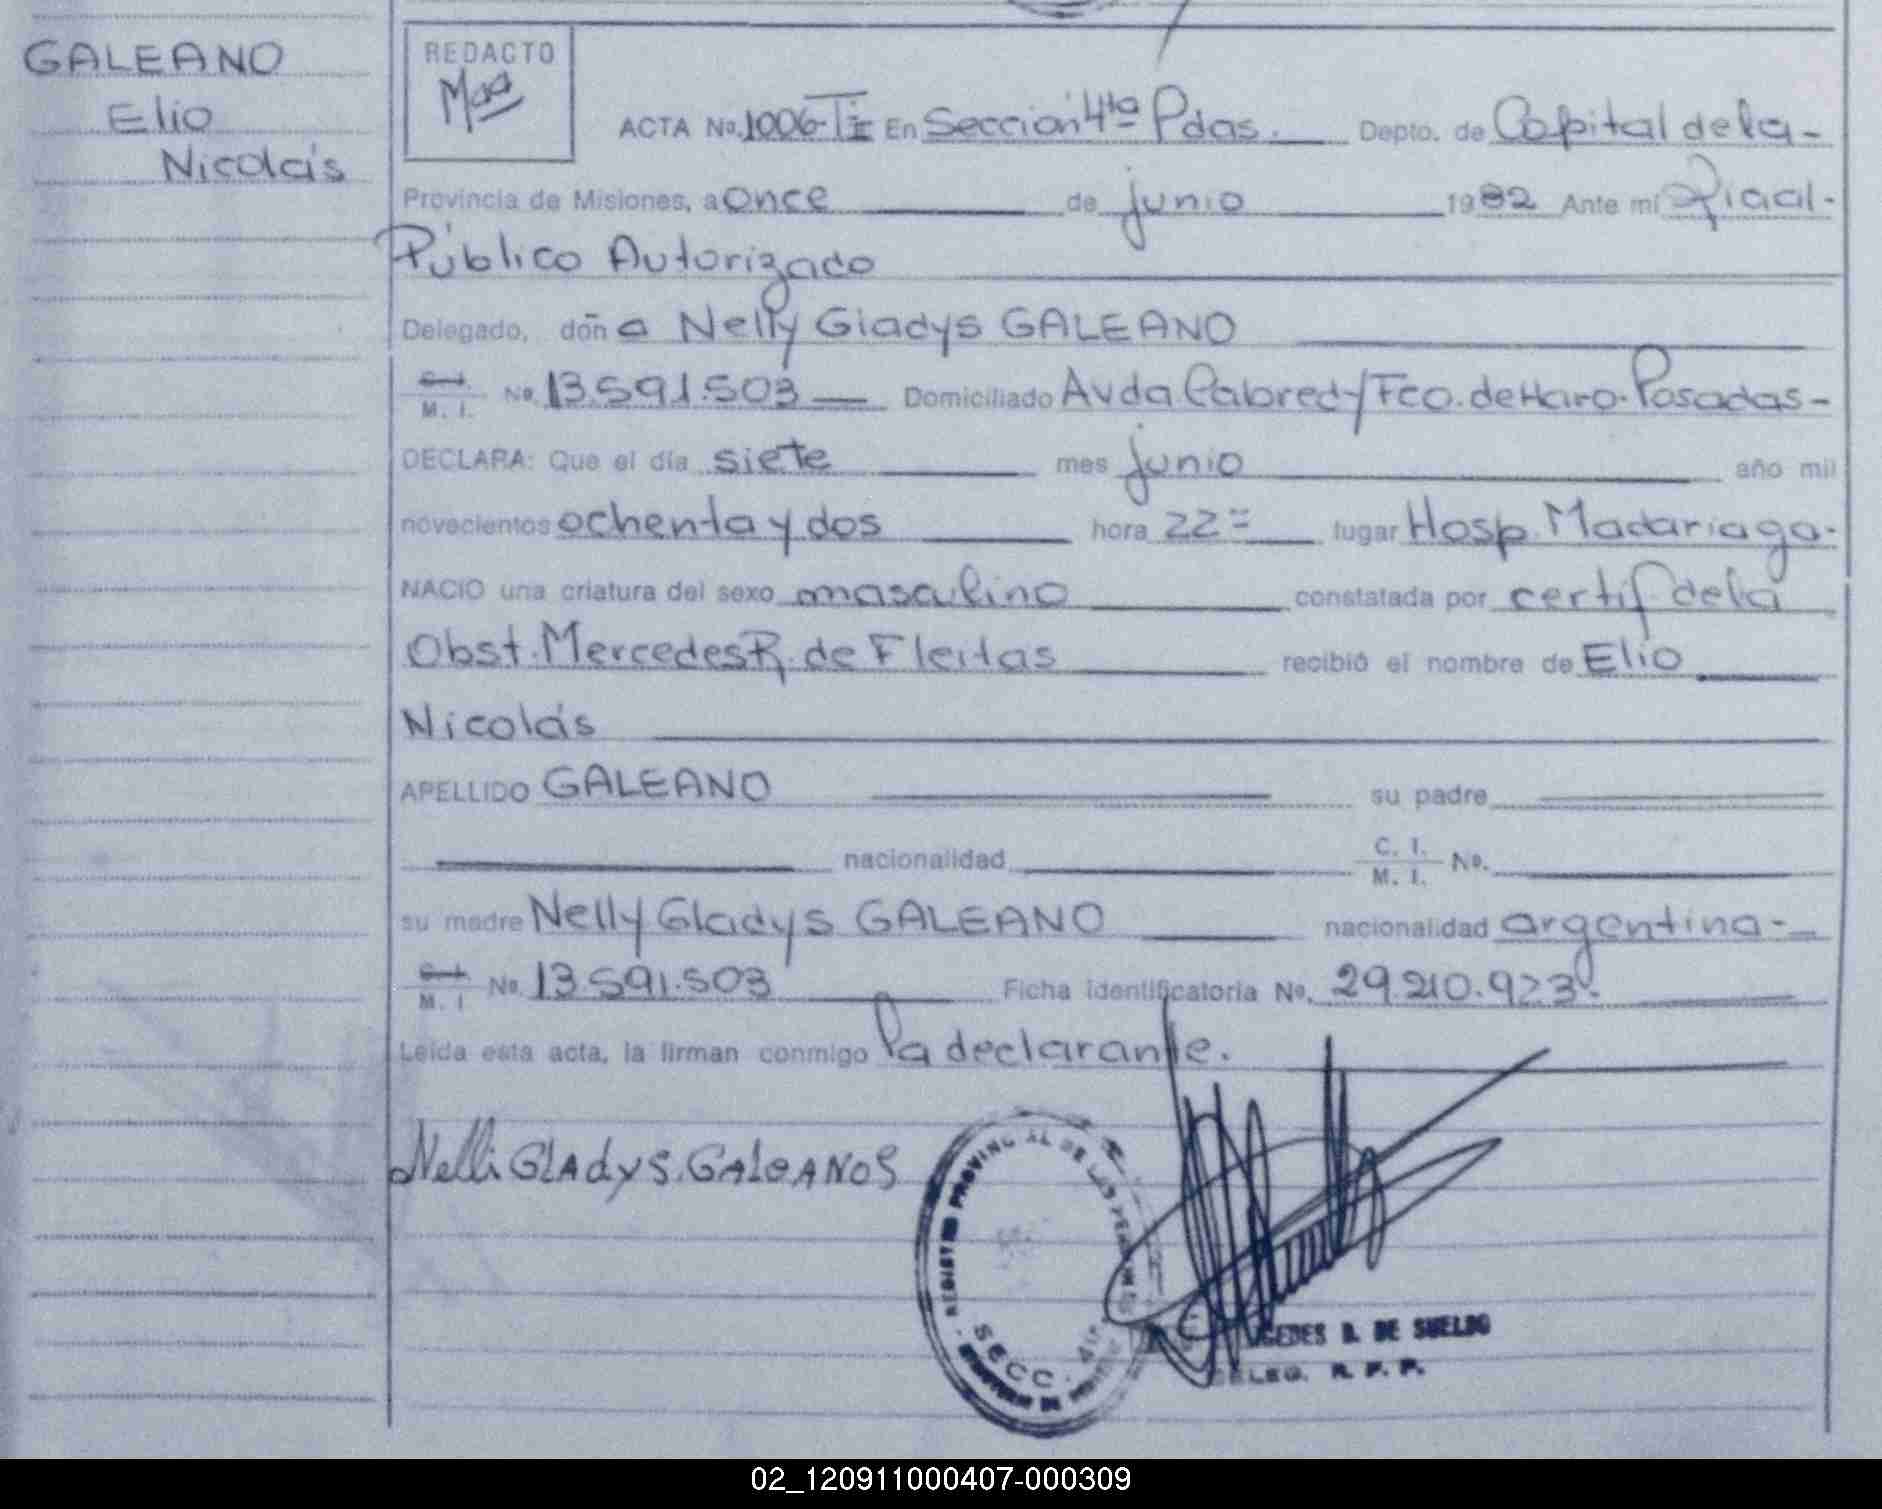 GALEANO
Elio
Nicolás
REDACTO
ACTA No. 1006-TII En Sección 4ta Pdas. Depto. de Capital de la-
Provincia de Misiones, a once de junio 1982 Ante mí Oficial-
Público Autorizado
Delegado, doñ a Nelly Gladys GALEANO
M. I. No. 13.591.503 Domiciliado Avda Cabred y Fco. de Haro. Posadas-
DECLARA: Que el día siete mes junio año mil
novecientos ochenta y dos hora 22= lugar Hosp. Madariaga-
NACIO una criatura del sexo masculino constatada por certif de la
Obst. Mercedes R. de Fleitas recibió el nombre de Elio
Nicolás
APELLIDO GALEANO su padre
nacionalidad C. I. M. I. No.
su madre Nelly Gladys GALEANO nacionalidad argentina-
C. I. M. I No. 13.591.503 Ficha identificatoria No. 29.210.923-
Leída esta acta, la firman conmigo la declarante.
Nelli GLAdyS. GALeANOS
REGISTRO PROVINCIAL DE LAS PERSONAS
SECC. 4ta
B. DE SUELDO
DELEG. R. P. P.
02_120911000407-000309